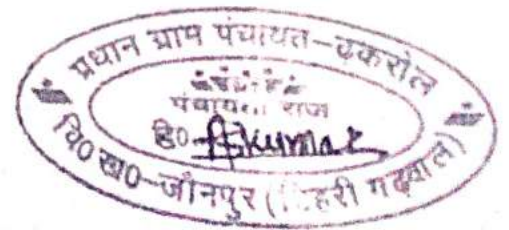 प्रधान ग्राम पंचायत-ढकरोल
पंचायती राज
ह०
वि० ख०-जौनपुर (टिहरी गढ़वाल)